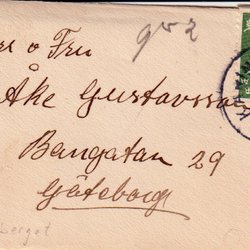 o Fru
Åke Gustavsso
Bangatan 29
Göteborg
berget